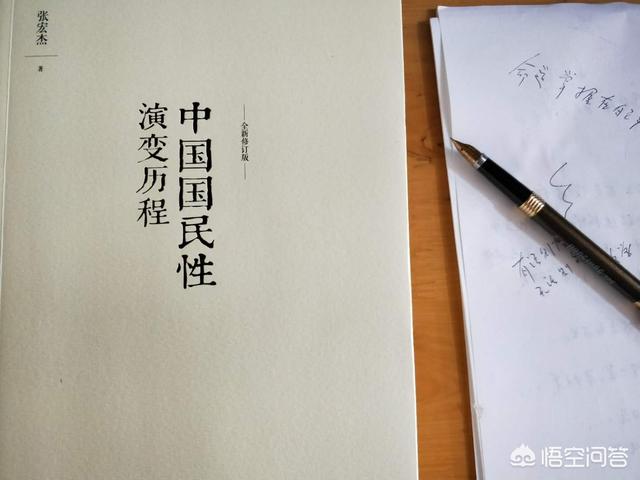 张宏杰
著
中国国民性
演变历程
全新修订版
掌握在自己
悟空问答